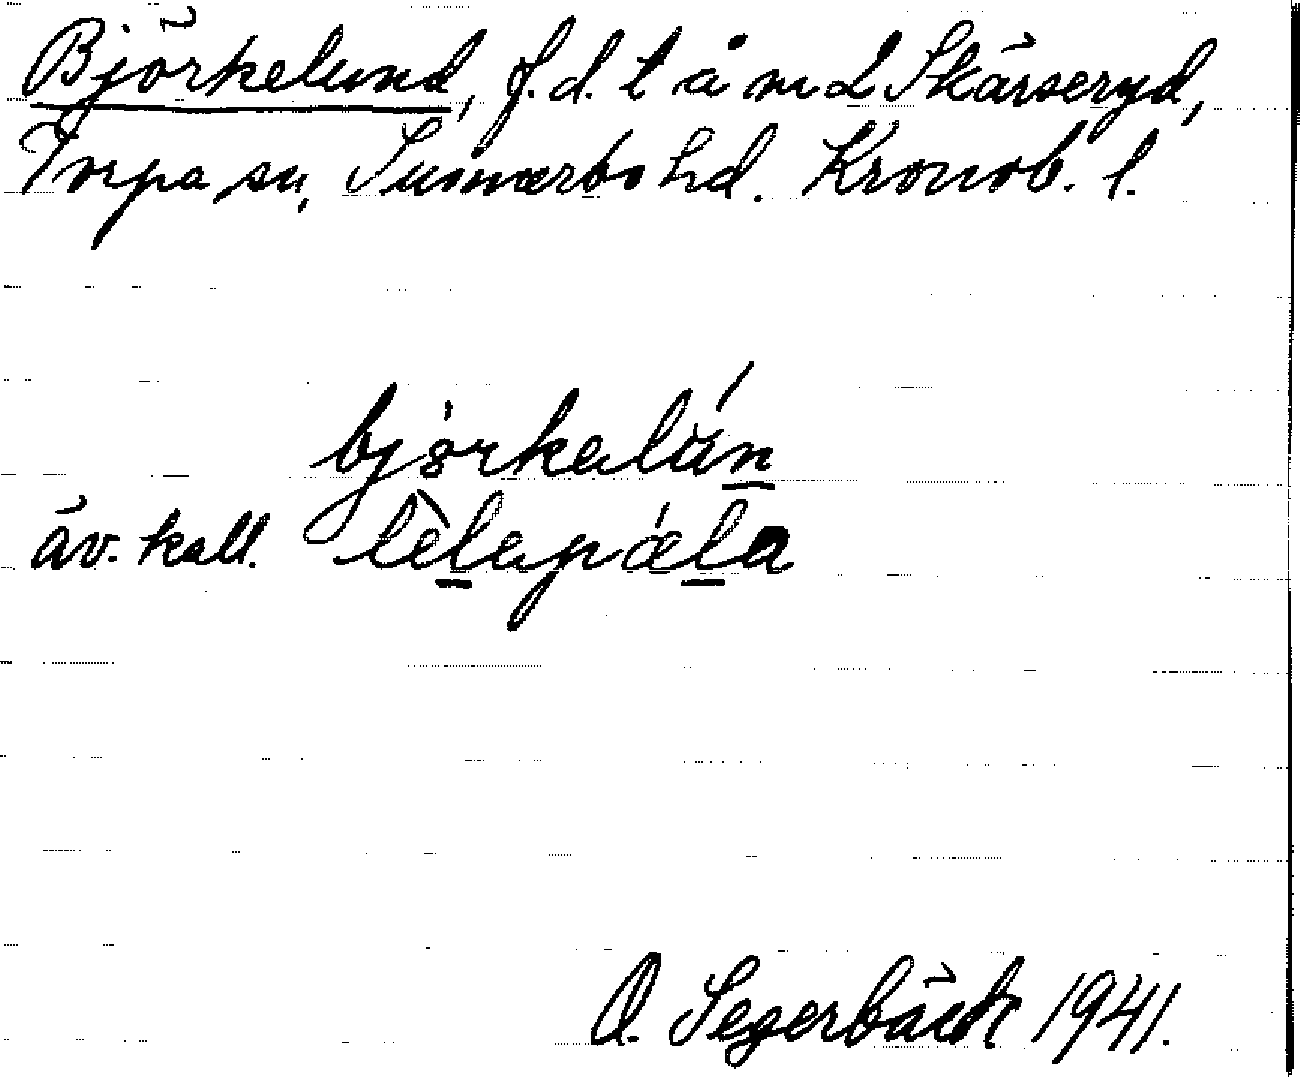 Björkelund, f.d. t å m L Skärseryd,
Torpa sn, Sunnerbo hd. Kronob. l.
björkalún
äv. kall. lèlapǽla
O. Segerbäck 1941.